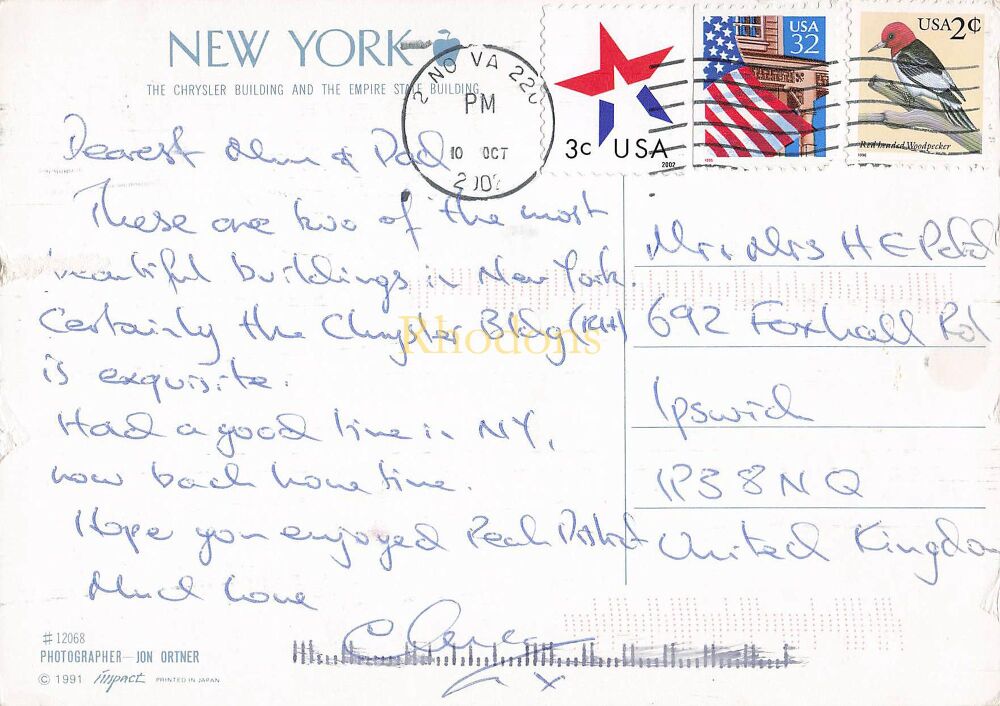 NEW YORK
THE CHRYSLER BUILDING AND THE EMPIRE STATE BUILDING
NO VA 220
PM
10 OCT
3c USA
2002
USA
32
USA 2¢
Red-headed Woodpecker
1996
Dearest Mum & Dad
These are two of the most
beautiful buildings in New York.
Certainly the Chrysler Bldg (RH)
is exquisite.
Had a good time in NY,
now back home time.
Hope you enjoyed Peak District
Much love
x
Mr & Mrs H E
692 Foxhall Rd
Ipswich
IP3 8NQ
United Kingdom
Rhodons
#12068
PHOTOGRAPHER—JON ORTNER
© 1991 impact PRINTED IN JAPAN